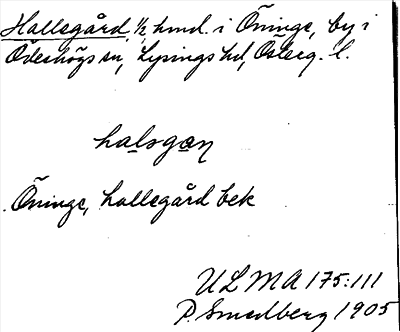 Hallegård, ½ hmd. i Öninge, by i
Ödeshögs sn, Lysings hd, Österg. l.
halsgan
Öninge, hallegård bek
ULMA 175:111
P. Smedberg 1905